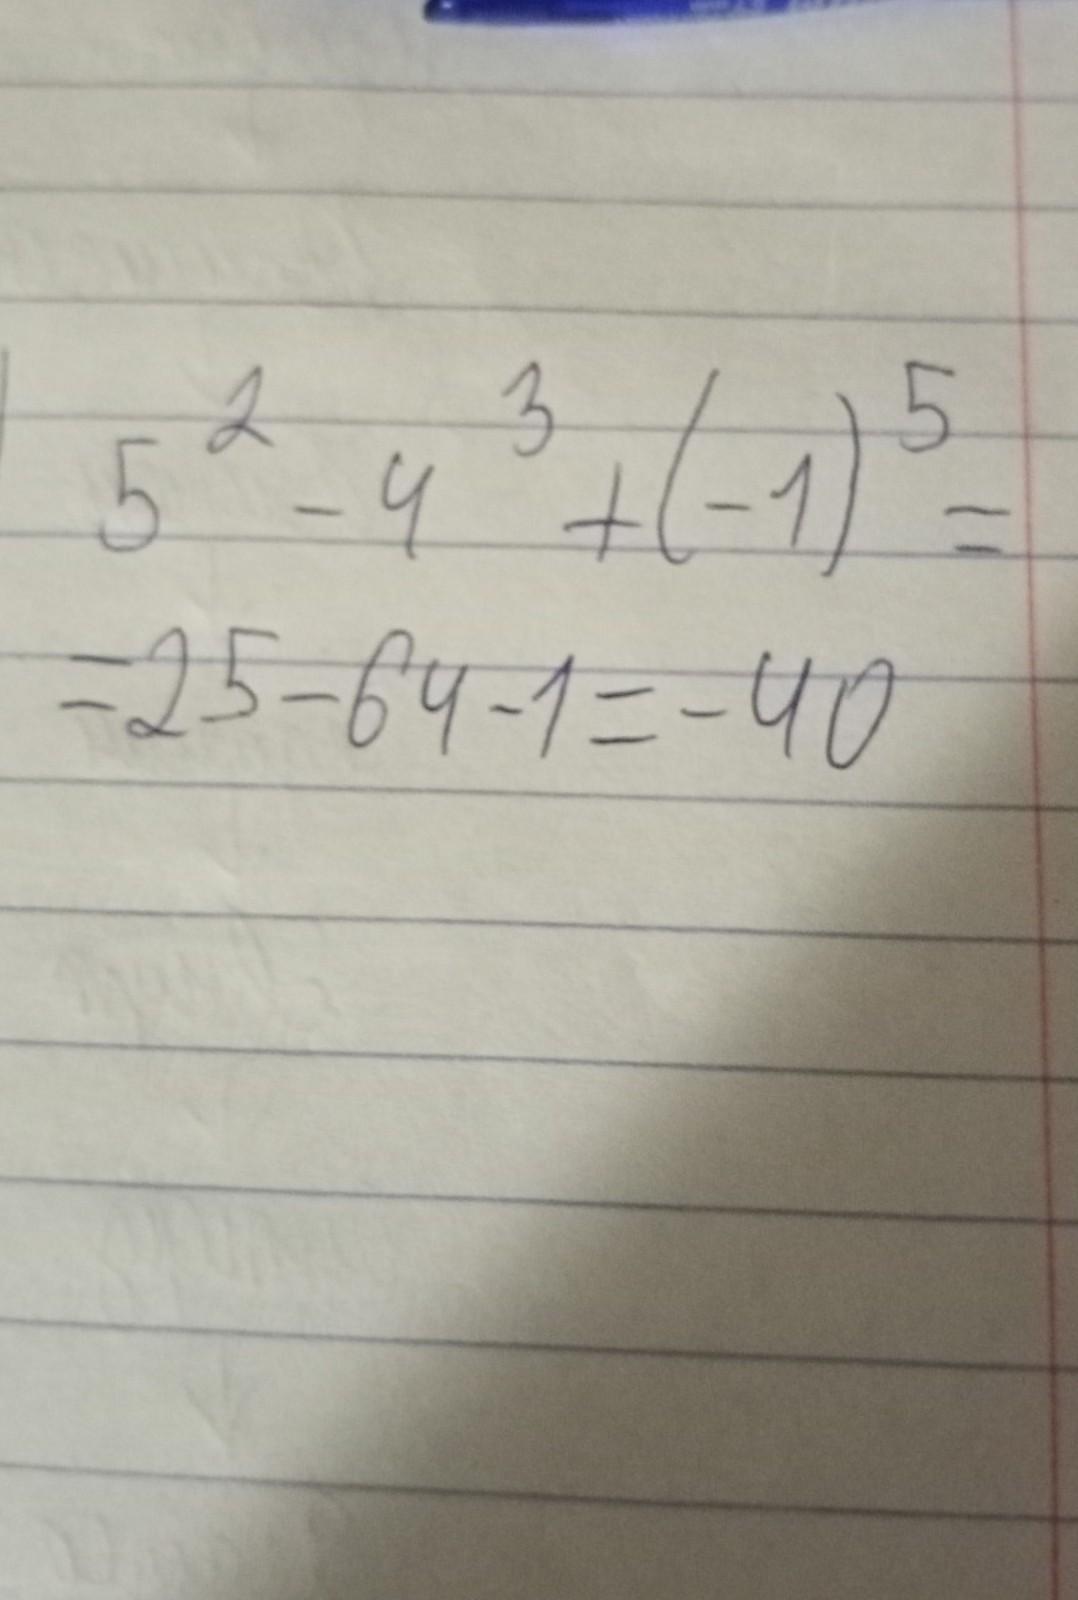 5² - 4³ + (-1)⁵ =
= 25 - 64 - 1 = - 40